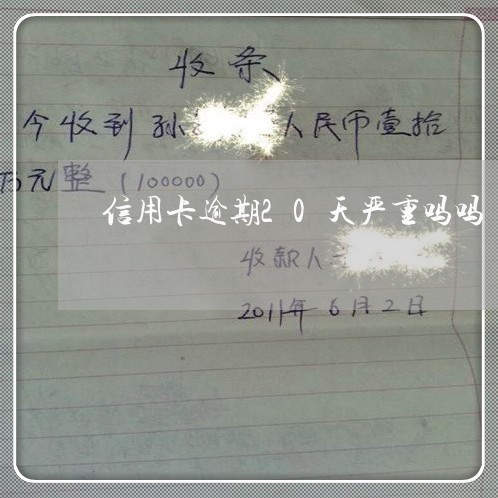 收条
今收到孙 人民币壹拾
万元整(100000)
信用卡逾期20天严重吗吗
收款人
2011年6月2日